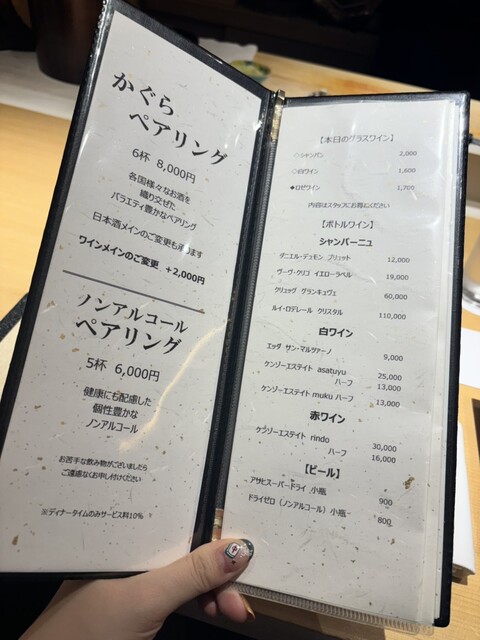 かぐら
ペアリング
6杯 8,000円
各国様々なお酒を
織り交ぜた
バラエティ豊かなペアリング
日本酒メインのご変更も承ります
ワインメインのご変更 +2,000円
ノンアルコール
ペアリング
5杯 6,000円
健康にも配慮した
個性豊かな
ノンアルコール
お苦手な飲み物がございましたら
ご遠慮なくお申し付けください
※ディナータイムのみサービス料10%
【本日のグラスワイン】
◇シャンパン 2,000
◇白ワイン 1,600
◆ロゼワイン 1,700
内容はスタッフにお尋ねください
【ボトルワイン】
シャンパーニュ
ダニエル・デュモン ブリュット 12,000
ヴーヴ・クリコ イエローラベル 19,000
クリュッグ グランキュヴェ 60,000
ルイ・ロデレール クリスタル 110,000
白ワイン
エッダ サン・マルツァーノ 9,000
ケンゾーエステイト asatuyu 25,000
ハーフ 13,000
ケンゾーエステイト muku ハーフ 13,000
赤ワイン
ケンゾーエステイト rindo 30,000
ハーフ 16,000
【ビール】
アサヒスーパードライ 小瓶 900
ドライゼロ（ノンアルコール）小瓶 800